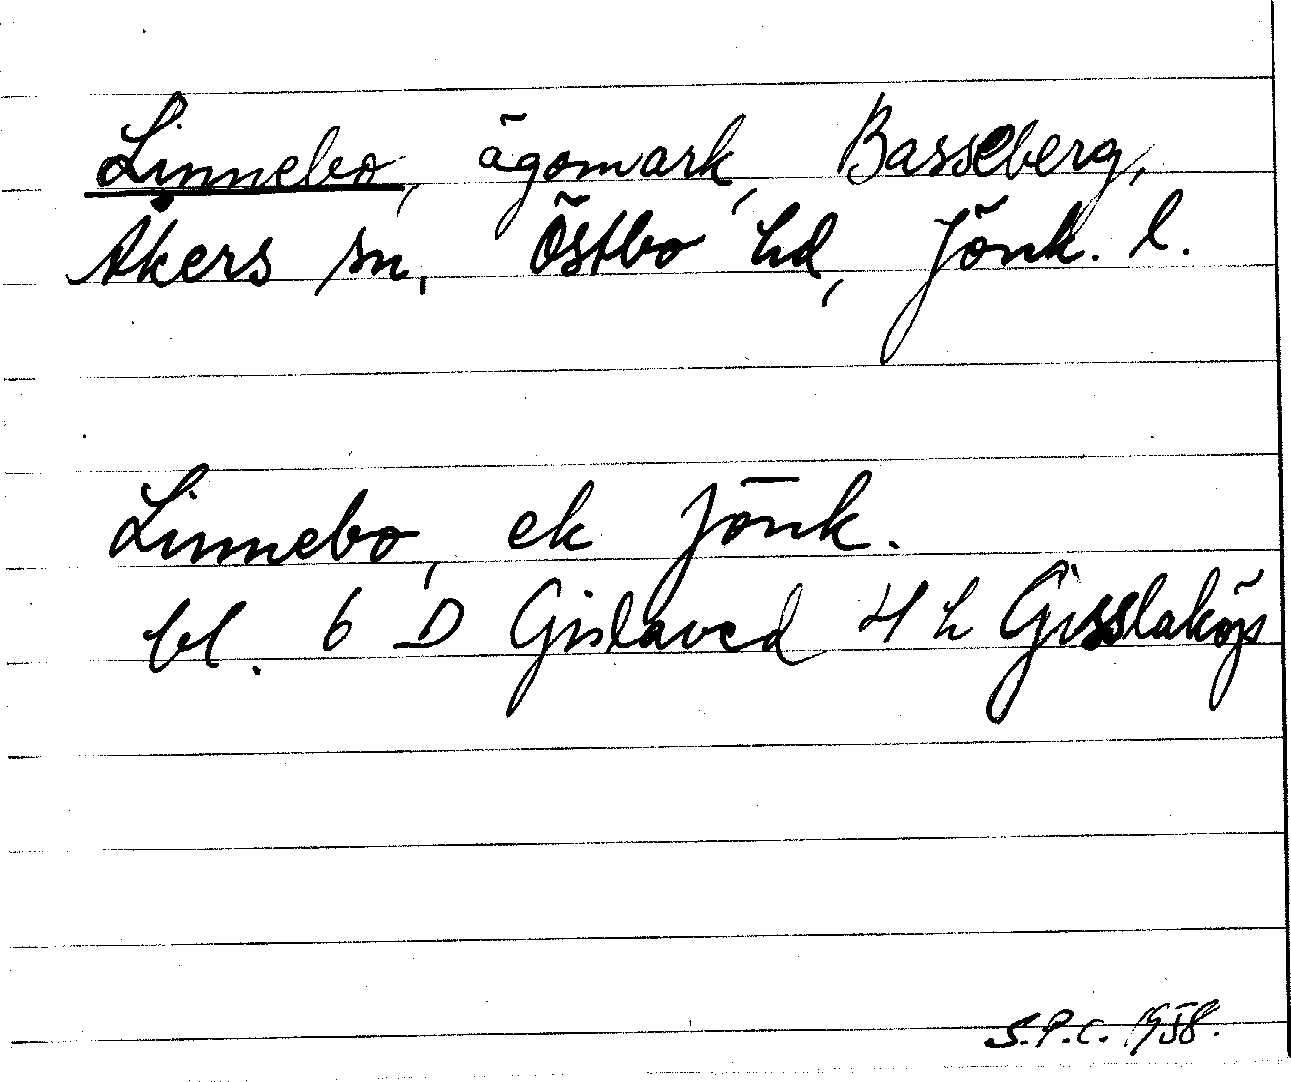 Linnebo, ägomark, Basseberg,
Åkers sn, Östbo hd, Jönk. l.
Linnebo, ek Jönk.
bl. 6 D Gislaved 4 h Gisslaköp
S.P.C. 1958.